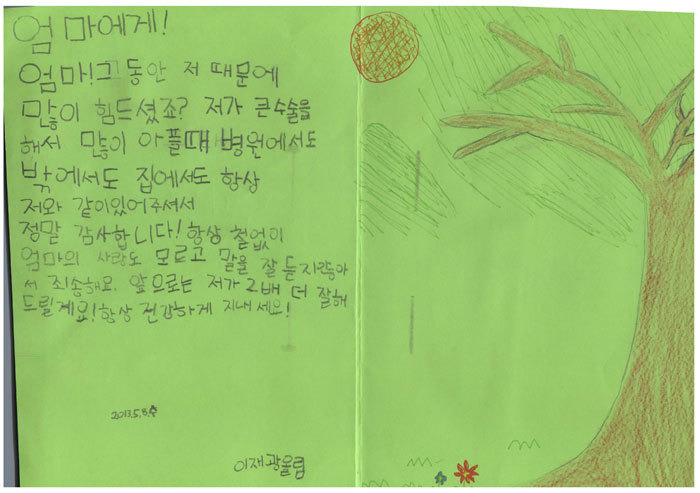 엄마에게!
엄마! 그동안 저 때문에
많이 힘드셨죠? 저가 큰수술을
해서 많이 아플때 병원에서도
밖에서도 집에서도 항상
저와 같이있어주셔서
정말 감사합니다! 항상 철없이
엄마의 사랑도 모르고 말을 잘 듣지않아
서 죄송해요. 앞으로는 저가 2배 더 잘해
드릴게요! 항상 건강하게 지내세요!
2013.5.8.수
이재광올림